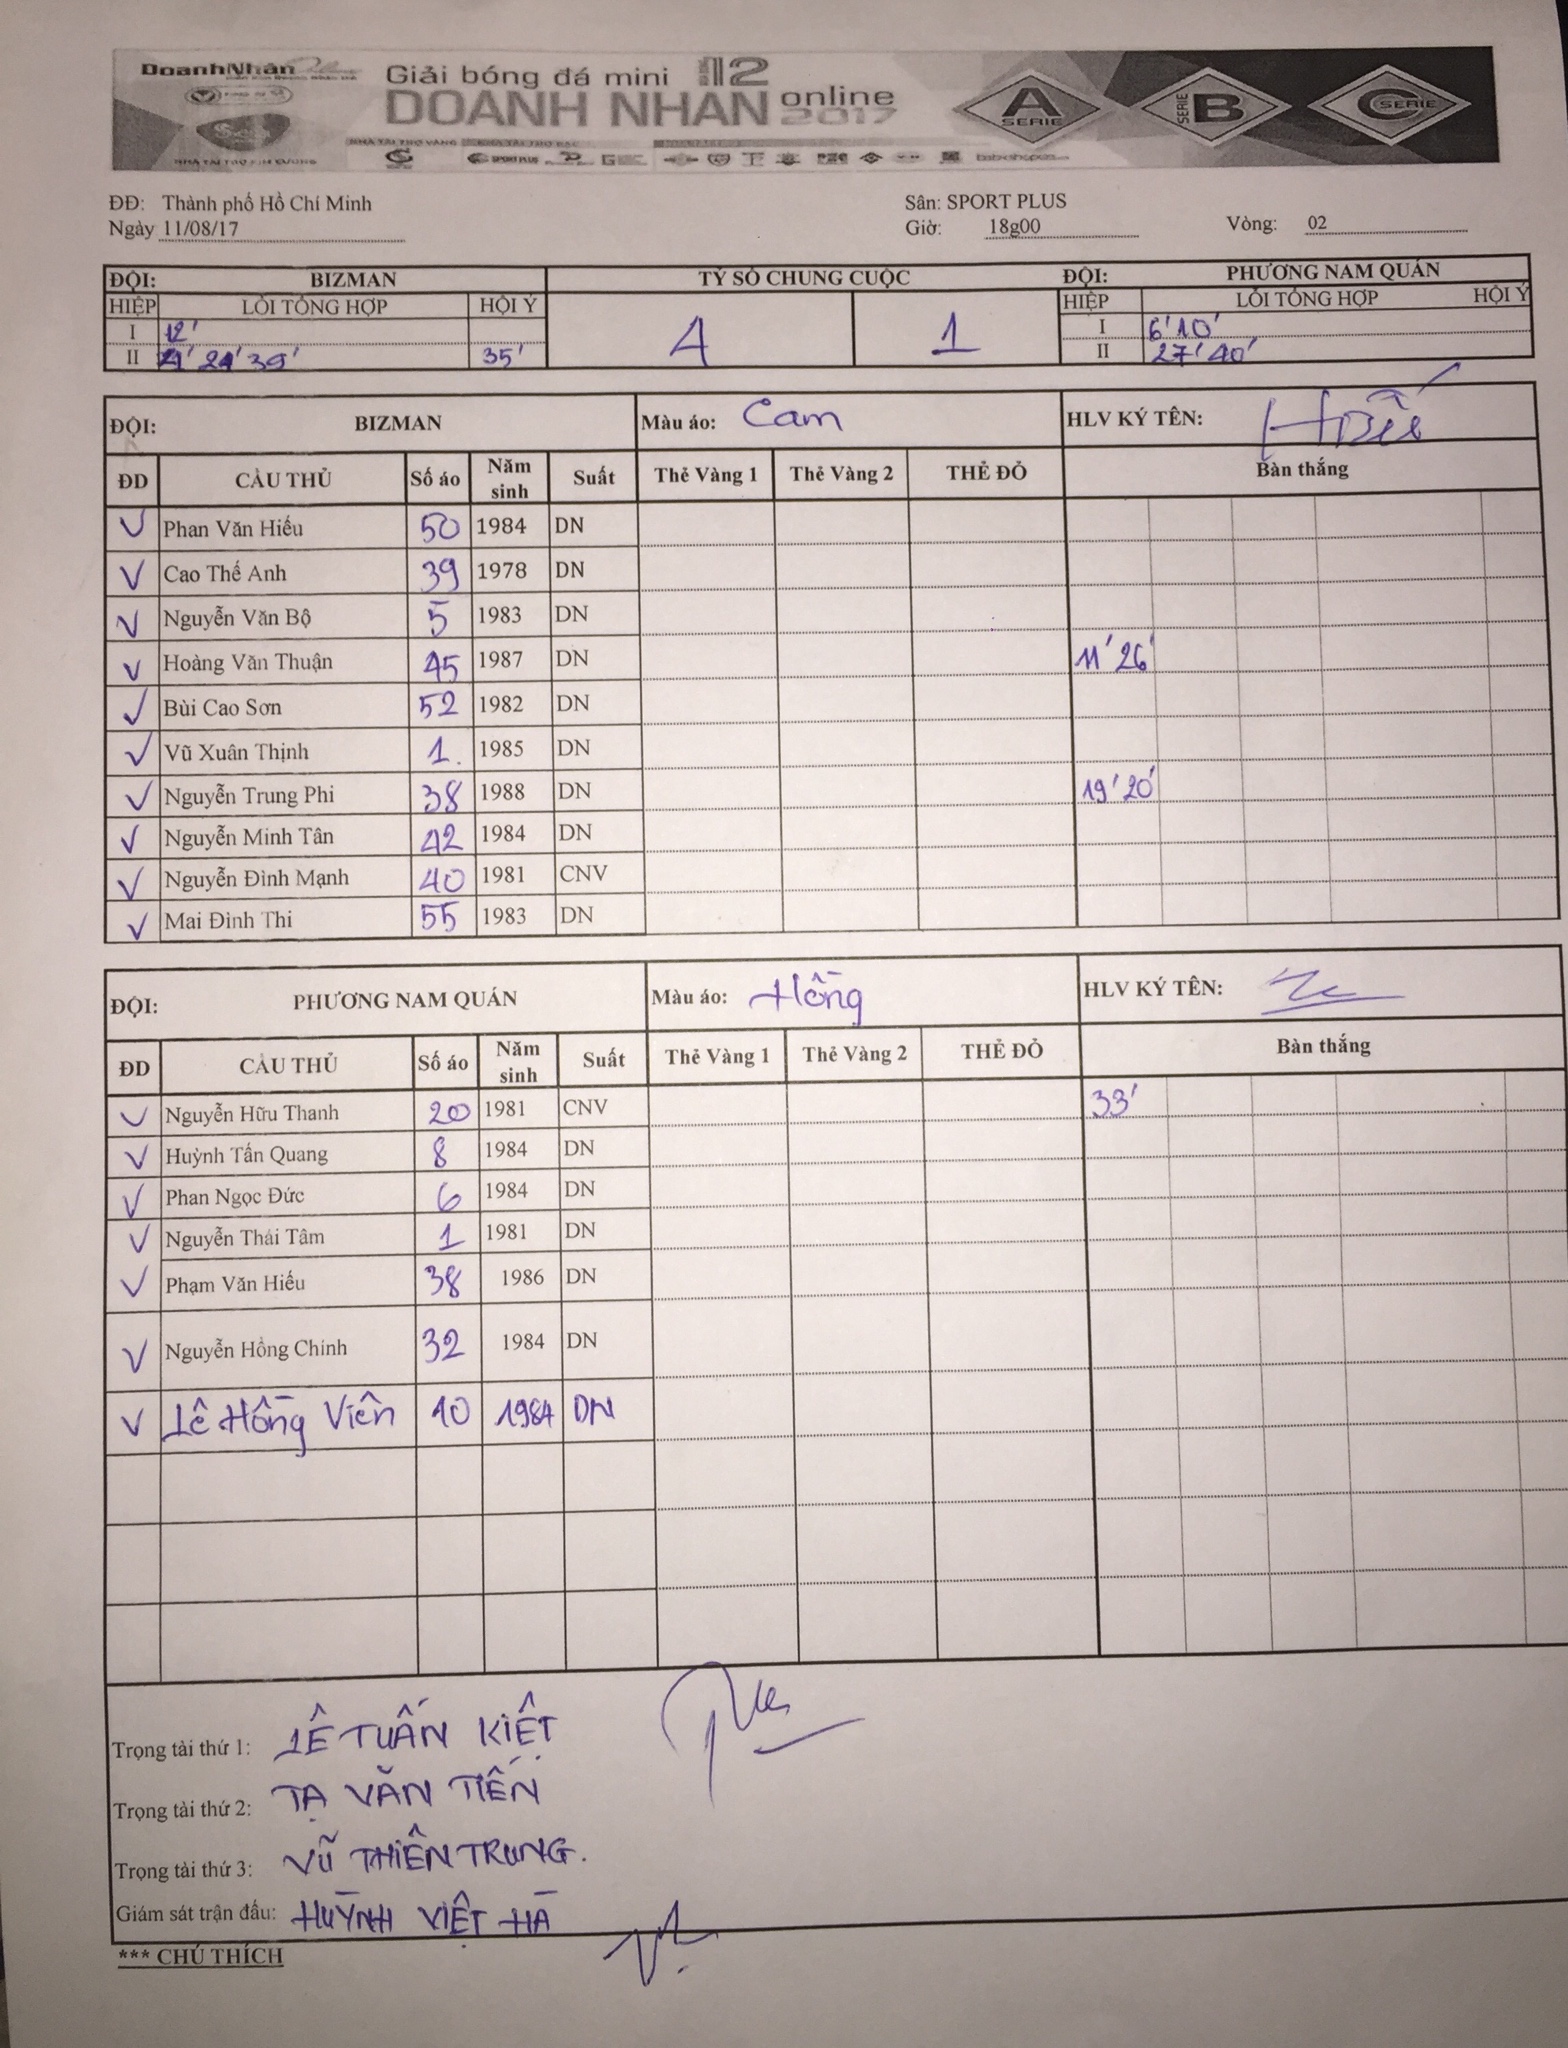 DoanhNhân
Giải bóng đá mini 12
DOANH NHAN online 2017
A SERIE
SERIE B
C SERIE
NHÀ TÀI TRỢ KIM CƯƠNG
NHÀ TÀI TRỢ VÀNG NHÀ TÀI TRỢ BẠC
SPORT PLUS
ĐĐ: Thành phố Hồ Chí Minh Sân: SPORT PLUS
Ngày 11/08/17 Giờ: 18g00 Vòng: 02
ĐỘI: BIZMAN TỶ SỐ CHUNG CUỘC ĐỘI: PHƯƠNG NAM QUÁN
HIỆP LỖI TỔNG HỢP HỘI Ý 4 1 HIỆP LỖI TỔNG HỢP HỘI Ý
I 12' I 6' 10'
II 24' 39' 35' II 27' 40'
ĐỘI: BIZMAN Màu áo: Cam HLV KÝ TÊN:
ĐD CẦU THỦ Số áo Năm sinh Suất Thẻ Vàng 1 Thẻ Vàng 2 THẺ ĐỎ Bàn thắng
V Phan Văn Hiếu 50 1984 DN
V Cao Thế Anh 39 1978 DN
V Nguyễn Văn Bộ 5 1983 DN
V Hoàng Văn Thuận 45 1987 DN 11' 26'
V Bùi Cao Sơn 52 1982 DN
V Vũ Xuân Thịnh 1. 1985 DN
V Nguyễn Trung Phi 38 1988 DN 19' 20'
V Nguyễn Minh Tân 42 1984 DN
V Nguyễn Đình Mạnh 40 1981 CNV
V Mai Đình Thi 55 1983 DN
ĐỘI: PHƯƠNG NAM QUÁN Màu áo: Hồng HLV KÝ TÊN:
ĐD CẦU THỦ Số áo Năm sinh Suất Thẻ Vàng 1 Thẻ Vàng 2 THẺ ĐỎ Bàn thắng
V Nguyễn Hữu Thanh 20 1981 CNV 33'
V Huỳnh Tấn Quang 8 1984 DN
V Phan Ngọc Đức 6 1984 DN
V Nguyễn Thái Tâm 1 1981 DN
V Phạm Văn Hiếu 38 1986 DN
V Nguyễn Hồng Chính 32 1984 DN
V Lê Hồng Viên 10 1984 DN
Trọng tài thứ 1: LÊ TUẤN KIỆT
Trọng tài thứ 2: TẠ VĂN TIẾN
Trọng tài thứ 3: VŨ THIÊN TRUNG.
Giám sát trận đấu: HUỲNH VIỆT HÀ
*** CHÚ THÍCH